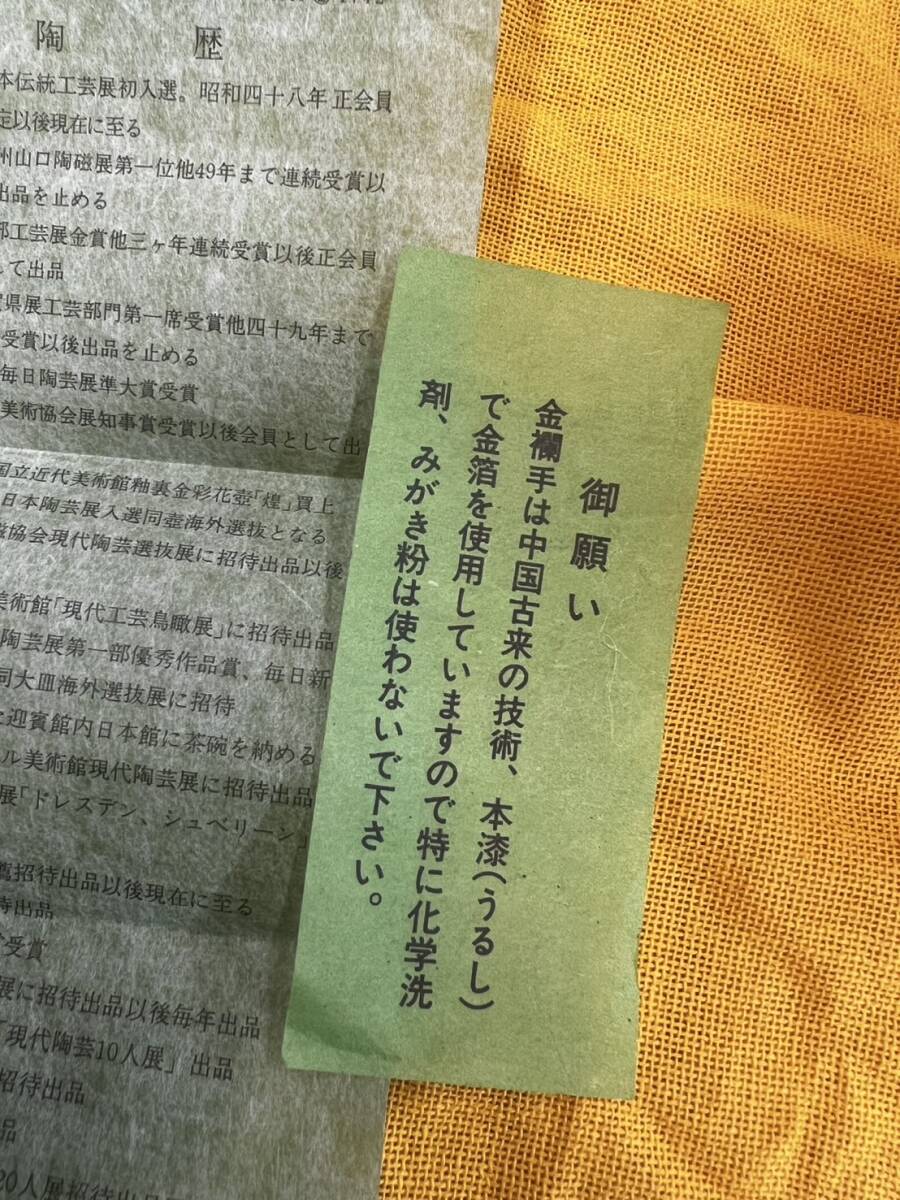 陶歴
本伝統工芸展初入選。昭和四十八年正会員
定以後現在に至る
州山口陶磁展第一位他49年まで連続受賞以
出品を止める
部工芸展金賞他三ヶ年連続受賞以後正会員
して出品
県展工芸部門第一席受賞他四十九年まで
受賞以後出品を止める
毎日陶芸展準大賞受賞
美術協会展知事賞受賞以後会員として出
国立近代美術館釉裏金彩花壺「煌」買上
日本陶芸展入選同壺海外選抜となる
磁協会現代陶芸選抜展に招待出品以後
美術館「現代工芸鳥瞰展」に招待出品
陶芸展第一部優秀作品賞、毎日新
同大皿海外選抜展に招待
迎賓館内日本館に茶碗を納める
ル美術館現代陶芸展に招待出品
展「ドレスデン、シュベリーン」
招待出品以後現在に至る
待出品
受賞
展に招待出品以後毎年出品
「現代陶芸10人展」出品
招待出品
品
20人展招待出品
御願い
金襴手は中国古来の技術、本漆(うるし)
で金箔を使用していますので特に化学洗
剤、みがき粉は使わないで下さい。